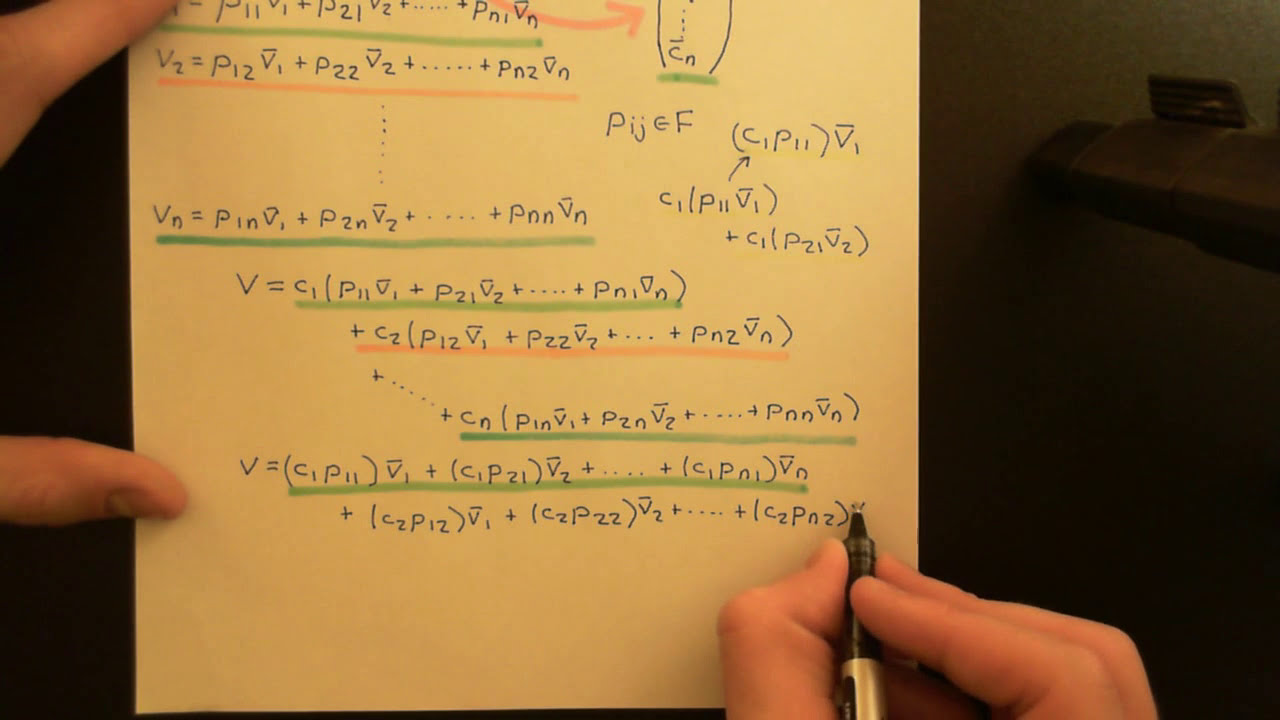 = p₁₁v̄₁ + p₂₁v̄₂ + ..... + pₙ₁v̄ₙ
c̄ₙ
v₂ = p₁₂v̄₁ + p₂₂v̄₂ + ...... + pₙ₂v̄ₙ
pᵢⱼ ∈ F
(c₁p₁₁)v̄₁
c₁(p₁₁v̄₁)
vₙ = p₁ₙv̄₁ + p₂ₙv̄₂ + ..... + pₙₙv̄ₙ
+ c₁(p₂₁v̄₂)
V = c₁(p₁₁v̄₁ + p₂₁v̄₂ + ..... + pₙ₁v̄ₙ)
+ c₂(p₁₂v̄₁ + p₂₂v̄₂ + ... + pₙ₂v̄ₙ)
+ ......
+ cₙ(p₁ₙv̄₁ + p₂ₙv̄₂ + ..... + pₙₙv̄ₙ)
V = (c₁p₁₁)v̄₁ + (c₁p₂₁)v̄₂ + ..... + (c₁pₙ₁)v̄ₙ
+ (c₂p₁₂)v̄₁ + (c₂p₂₂)v̄₂ + ..... + (c₂pₙ₂)